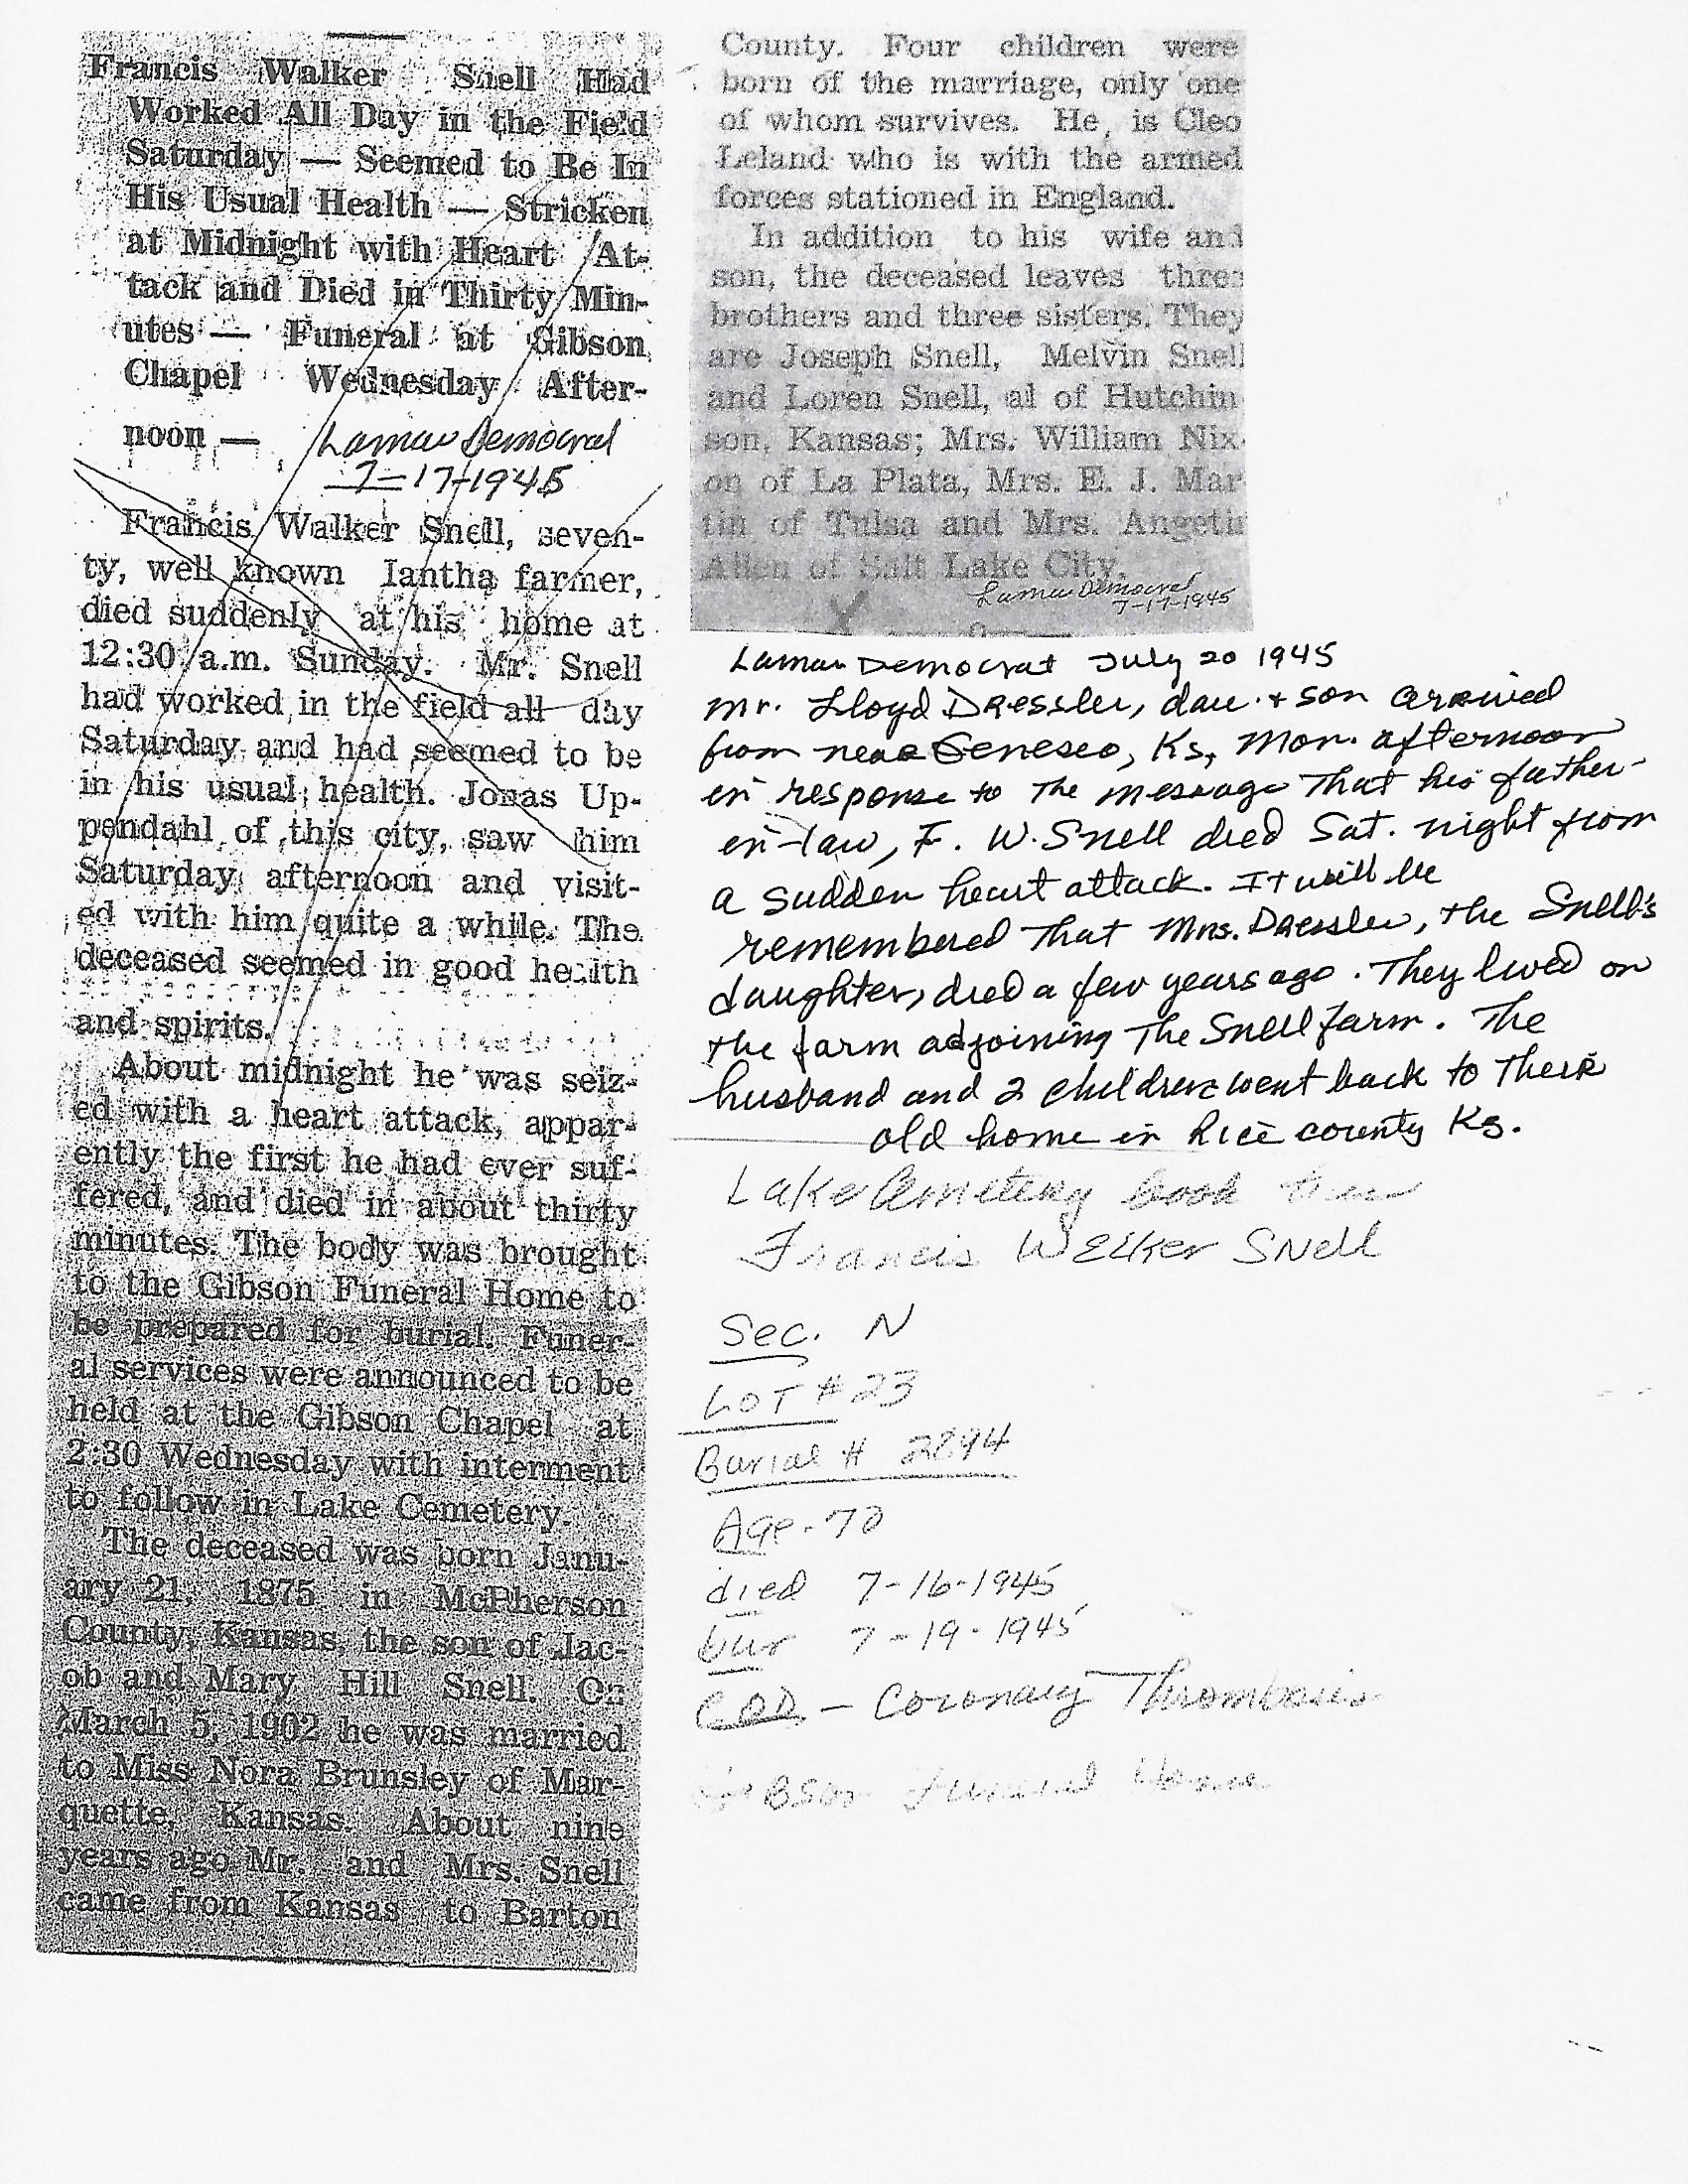 Francis Walker Snell Had
Worked All Day in the Field
Saturday — Seemed to Be In
His Usual Health — Stricken
at Midnight with Heart At-
tack and Died in Thirty Min-
utes — Funeral at Gibson
Chapel Wednesday After-
noon —
Lamar Democrat
7-17-1945
Francis Walker Snell, seven-
ty, well known Iantha farmer,
died suddenly at his home at
12:30 a.m. Sunday. Mr. Snell
had worked in the field all day
Saturday and had seemed to be
in his usual health. Jonas Up-
pendahl of this city, saw him
Saturday afternoon and visit-
ed with him quite a while. The
deceased seemed in good health
and spirits.
About midnight he was seiz-
ed with a heart attack, appar-
ently the first he had ever suf-
fered, and died in about thirty
minutes. The body was brought
to the Gibson Funeral Home to
be prepared for burial. Funer-
al services were announced to be
held at the Gibson Chapel at
2:30 Wednesday with interment
to follow in Lake Cemetery.
The deceased was born Janu-
ary 21, 1875 in McPherson
County, Kansas, the son of Jac-
ob and Mary Hill Snell. On
March 5, 1902 he was married
to Miss Nora Brunsley of Mar-
quette, Kansas. About nine
years ago Mr. and Mrs. Snell
came from Kansas to Barton
County. Four children were
born of the marriage, only one
of whom survives. He is Cleo
Leland who is with the armed
forces stationed in England.
In addition to his wife and
son, the deceased leaves three
brothers and three sisters. They
are Joseph Snell, Melvin Snell
and Loren Snell, al of Hutchin
son, Kansas; Mrs. William Nix-
on of La Plata, Mrs. E. J. Mar
tin of Tulsa and Mrs. Angetin
Allen of Salt Lake City.
Lamar Democrat
7-17-1945
Lamar Democrat July 20 1945
Mr. Lloyd Dressler, dau. + son arrived
from near Geneseo, Ks, Mon. afternoon
in response to the message that his father-
in-law, F. W. Snell died Sat. night from
a sudden heart attack. It will be
remembered that Mrs. Dressler, the Snell's
daughter, died a few years ago. They lived on
the farm adjoining the Snell farm. The
husband and 2 children went back to their
old home in Rice county Ks.
Lake Cemetery book
Francis Welker Snell
Sec. N
LOT # 23
Burial # 2894
Age - 70
died 7-16-1945
bur 7-19-1945
COD - Coronary Thrombosis
Gibson Funeral Home